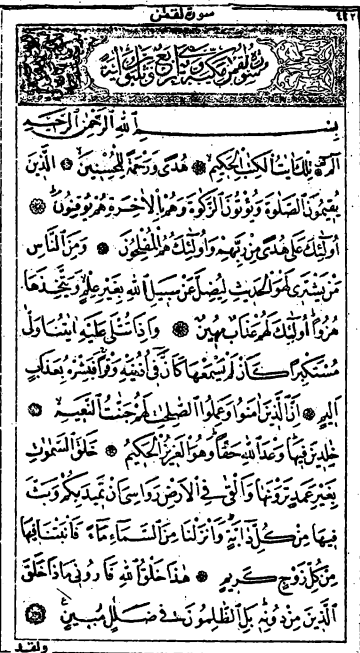 سورة لقمن ٤٤٢
بسم الله الرحمن الرحيم
الم تلك ايت الكتب الحكيم هدى ورحمة للمحسنين الذين
يقيمون الصلوة ويؤتون الزكوة وهم بالاخرة هم يوقنون
اولئك على هدى من ربهم واولئك هم المفلحون ومن الناس
من يشترى لهو الحديث ليضل عن سبيل الله بغير علم ويتخذها
هزوا اولئك لهم عذاب مهين واذا تتلى عليه ايتنا ولى
مستكبرا كان لم يسمعها كان فى اذنيه وقرا فبشره بعذاب
اليم ان الذين امنوا وعملوا الصلحت لهم جنت النعيم
خلدين فيها وعد الله حقا وهو العزيز الحكيم خلق السموت
بغير عمد ترونها والقى فى الارض رواسى ان تميد بكم وبث
فيها من كل دابة وانزلنا من السماء ماء فانبتنا فيها
من كل زوج كريم هذا خلق الله فارونى ماذا خلق
الذين من دونه بل الظلمون فى ضلل مبين
ولقد